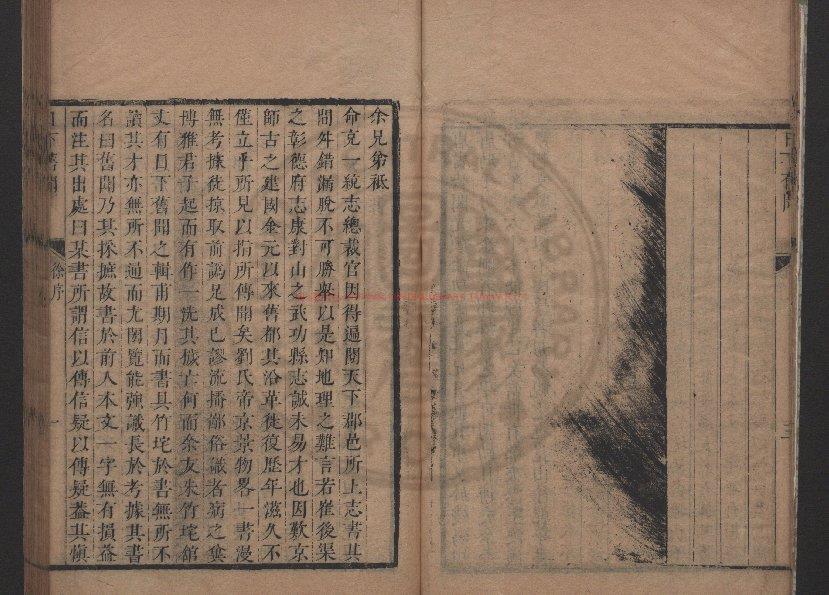 日下舊聞
余兄弟祗
命充一統志總裁官因得遍閱天下郡邑所上志書其
間舛錯漏脫不可勝舉以是知地理之難言若崔後渠
之彰德府志康對山之武功縣志誠未易才也因歎京
師古之建國金元以來舊都其沿革徙復歷年滋久不
僅立乎所見以指所傳聞矣劉氏帝京景物畧一書漫
無考據徒掠取前說足成已謬流播鄙俗識者病之
博雅君子起而有作一洗其而余友朱竹垞館
丈有日下舊聞之輯甫期月而書具竹垞於書無所不
讀其才亦無所不通而尤閎覽能強識長於考據其書
名曰舊聞乃其採摭故書於前人本文一字無有損益
而注其出處曰某書所謂信以傳信疑以傳疑葢其慎
日下舊聞
徐序
一